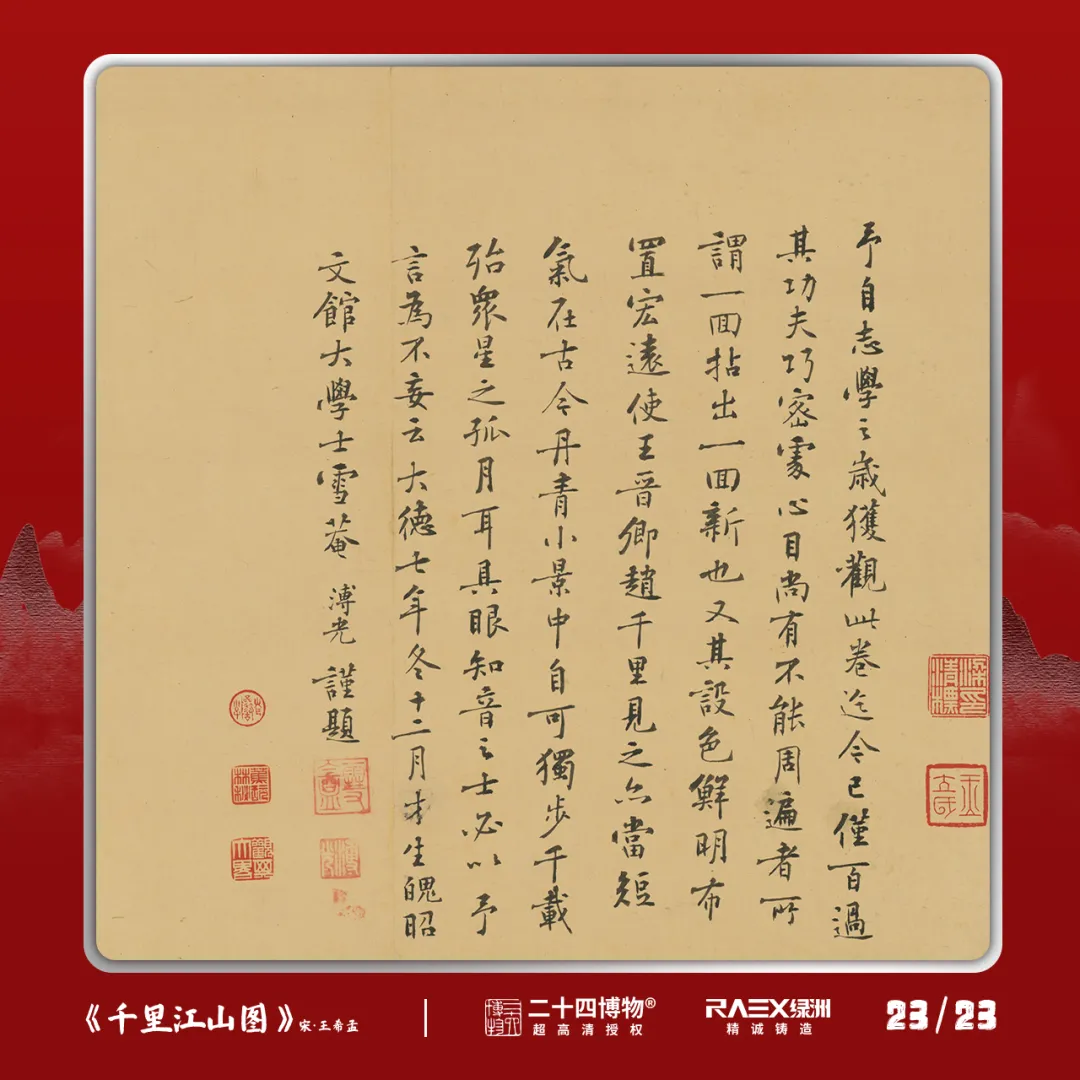 予自志學之歲獲觀此卷迄今已僅百過
其功夫巧密處心目尚有不能周遍者所
謂一回拈出一回新也又其設色鮮明布
置宏遠使王晉卿趙千里見之亦當短
氣在古今丹青小景中自可獨步千載
殆衆星之孤月耳具眼知音之士必以予
言為不妄云大德七年冬十二月才生魄昭
文館大學士雪菴溥光謹題
蕉林秘玩
觀其大略
《千里江山图》宋·王希孟
二十四博物®
超高清授权
RAEX绿洲
精诚铸造
23/23